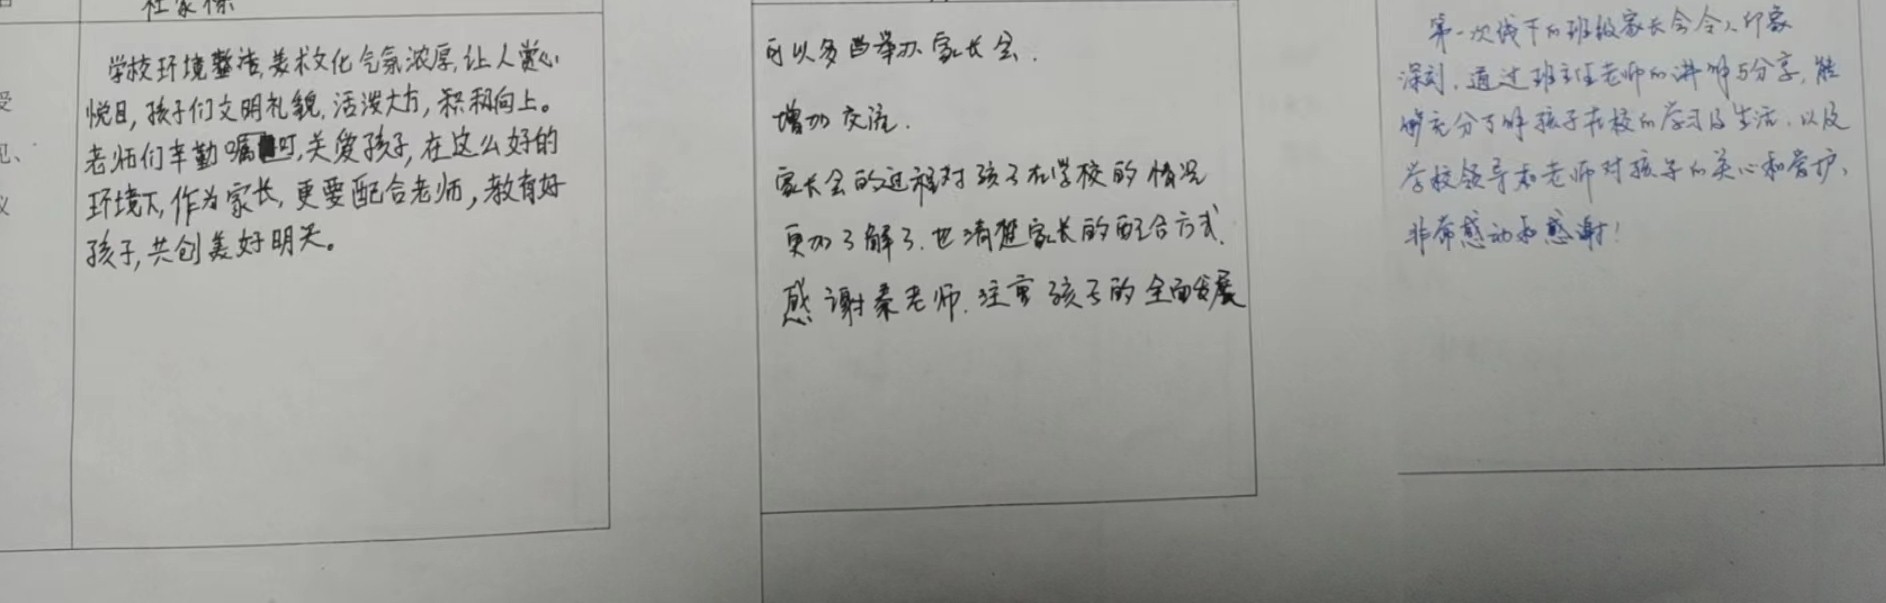 学校环境整洁,美术文化气氛浓厚,让人赏心
悦目,孩子们文明礼貌,活泼大方,积极向上。
老师们辛勤嘱叮,关爱孩子,在这么好的
环境下,作为家长,更要配合老师,教育好
孩子,共创美好明天。
可以多些举办家长会.
增加交流.
家长会的过程对孩子在学校的情况
更加了解了.也清楚家长的配合方式.
感谢秦老师.注重孩子的全面发展
第一次线下的班级家长会令人印象
深刻.通过班主任老师的讲解与分享,能
够充分了解孩子在校的学习及生活.以及
学校领导和老师对孩子的关心和爱护,
非常感动和感谢!